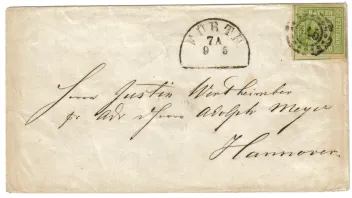 FÜRTH
7A
9 5
Herrn Justin Wertheimber
pr adr Herrn Adolph Meyer
Hannover.